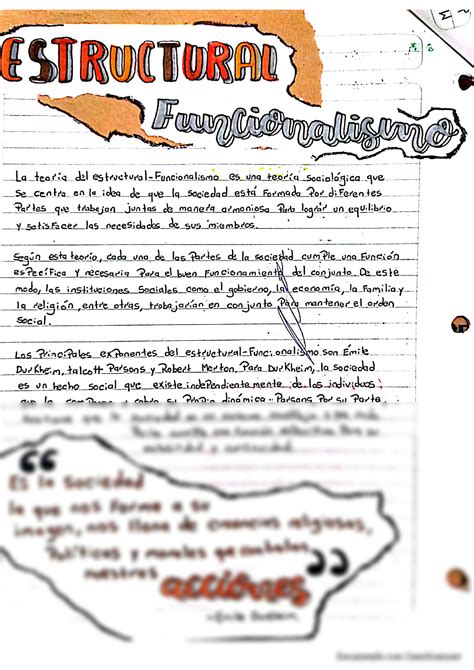 ESTRUCTURAL
Funcionalismo
La teoría del estructural-Funcionalismo es una teoría sociológica que
se centra en la idea de que la sociedad está Formada Por diFerentes
Partes que trabajan juntas de manera armoniosa Para lograr un equilibrio
y satisFacer las necesidades de sus miembros.
Según esta teoría, cada una de las Partes de la sociedad cumple una Función
esPecíFica y necesaria Para el buen Funcionamiento del conjunto. De este
modo, las instituciones Sociales como el gobierno, la economía, la Familia y
la religión, entre otras, trabajarían en conjunto Para mantener el orden
social.
Los PrinciPales exPonentes del estructural-Funcionalismo son Émile
DurKheim, talcott Parsons y Robert Merton. Para DurKheim, la sociedad
es un hecho social que existe independientemente de los individuos
que la comPonen y cobra su ProPia dinámica. Parsons Por su Parte
Es la sociedad
la que nos forma a su
imagen, nos llena de creencias religiosas,
Políticas y morales que controlan
nuestras
acciones